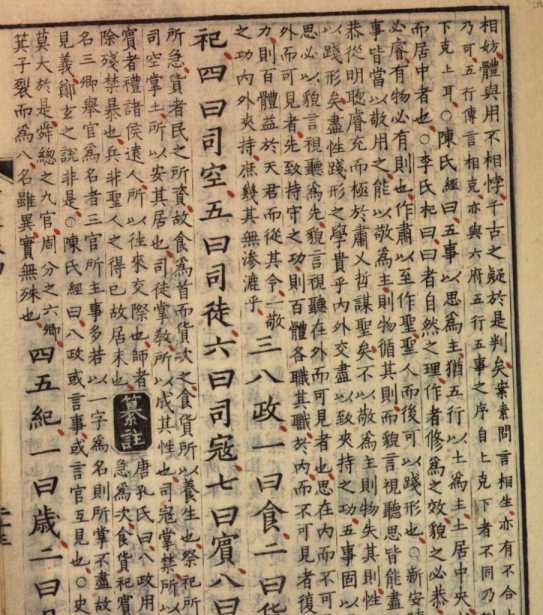 相妨體與用不相悖千古之疑於是判矣案素問言相生亦有不合
乃可五行傳言相克亦與六府五行五事之序自上克下者不同乃
下克上耳○陳氏經曰五事以思為主猶五行以土為主土居中央
而居中者也○李氏杞曰曰者自然之理作者修為之效貌必恭
必睿有物必有則也作肅以至作聖聖人而後可以踐形也○新安
事皆當以敬用之能以敬為主則物循其則而貌言視聽思皆能盡
恭從明聰睿充而極於肅乂哲謀聖矣不以敬為主則物失其則性
以踐形矣盡性踐形之學貴乎內外交盡以致夾持之功五事固以
思必以貌言視聽為先貌言視聽在外而可見者也思在內而不可
外而可見者先致持守之功則百體各職其職於內而不可見者復
力則百體益於天君而從其令一敬
之功內外夾持庶幾其無滲漉乎 三八政一曰食二曰貨
祀四曰司空五曰司徒六曰司寇七曰賓八曰
所急貨者民之所資故食為首而貨次之食貨所以養生也祭祀所
司空掌土所以安其居也司徒掌教所以成其性也司寇掌禁所以
賓者禮諸侯遠人所以往來交際也師者
除殘禁暴也兵非聖人之得已故居末也 纂註 唐孔氏曰八政用
急為次食貨祀賓
名三卿舉官為名者三官所主事多若以一字為名則所掌不盡故
見義鄭玄之說非是○陳氏經曰八政或言事或言官互見也○史
莫大於是舜總之九官周分之六卿
箕子裂而為八名雖異實無殊也 四五紀一曰歲二曰月